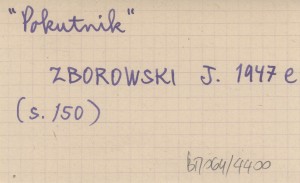 "Pokutnik"
ZBOROWSKI J. 1947 e
(s. 150)
BJ/064/4400